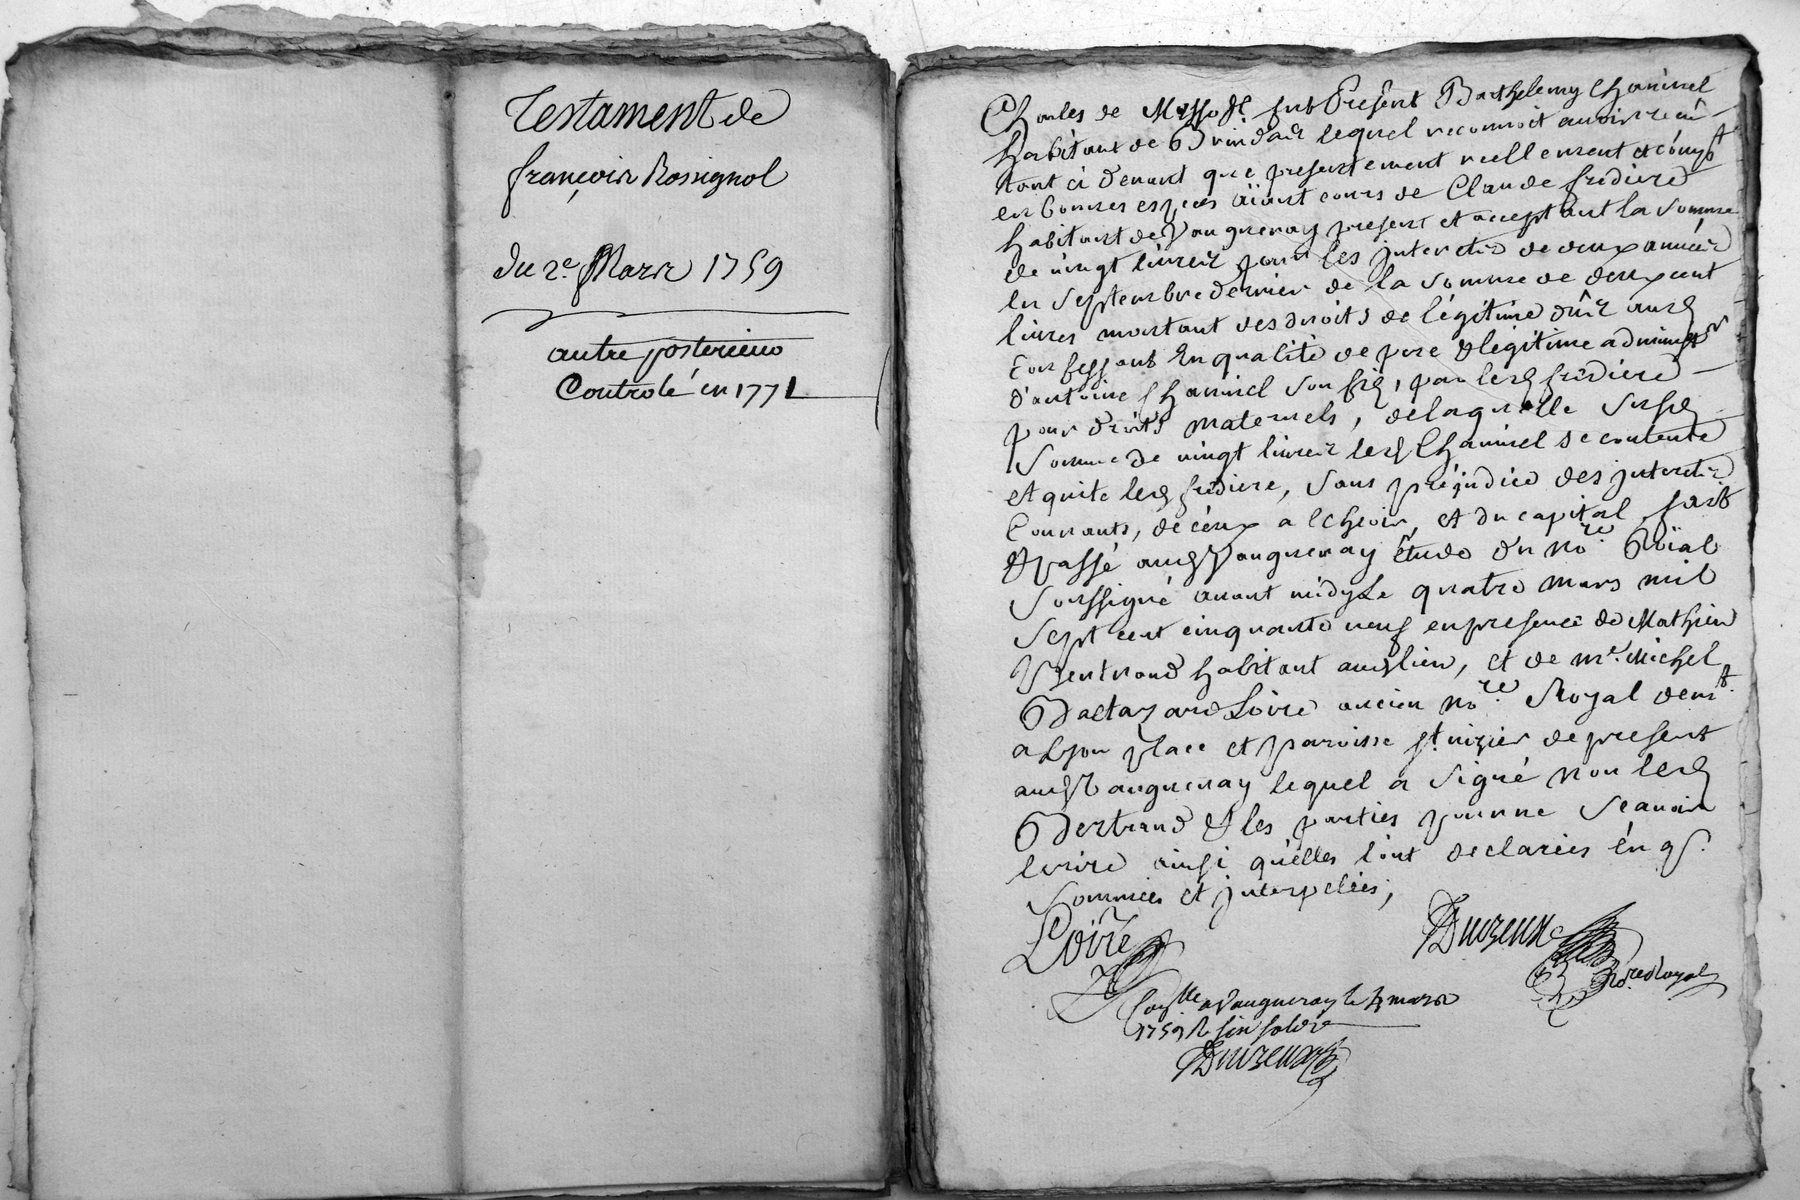 Testament de
françois Rossignol
du 2e Mars 1759
autre posterieur
Controlé en 1771
habitant de Brindas lequel reconnoit avoir recû
tant ci devant que presentement reellement et compt
en bonnes especes aïant cours de Claude fredière
habitant de Vaugneray present et acceptant la somme
de vingt livres pour les interets de deux années
en septembre dernier de la somme de deux cent
livres montant des droits de légitime dûs aud
Confessant En qualité de pere & légitime administr
d'antoine Chaninel son fils, par led fredière
pour droits maternels, de laquelle susd
somme de vingt livres led Chaninel se contente
et quite led fredière, sans préjudice des interets
Courants, de ceux a Echeoir, et du capital, fait
& passé aud Vaugneray Etude du nore Roïal
soussigné avant midy Le quatre mars mil
sept cent cinquante neuf en presence de Mathieu
Bertrand habitant aud lieu, et de me Michel
Baltazard Loire ancien nore Royal demt
a Lyon place et paroisse st nizier de present
aud Vaugneray lequel a signé non led
Bertrand & les parties pour ne scavoir
Ecrire ainsi qu'elles l'ont declarées én
sommées et interpelées,
Loire
Duizeux
no.re Royal
a Vaugneray le 4 mars
1759 R six sols
Duizeux